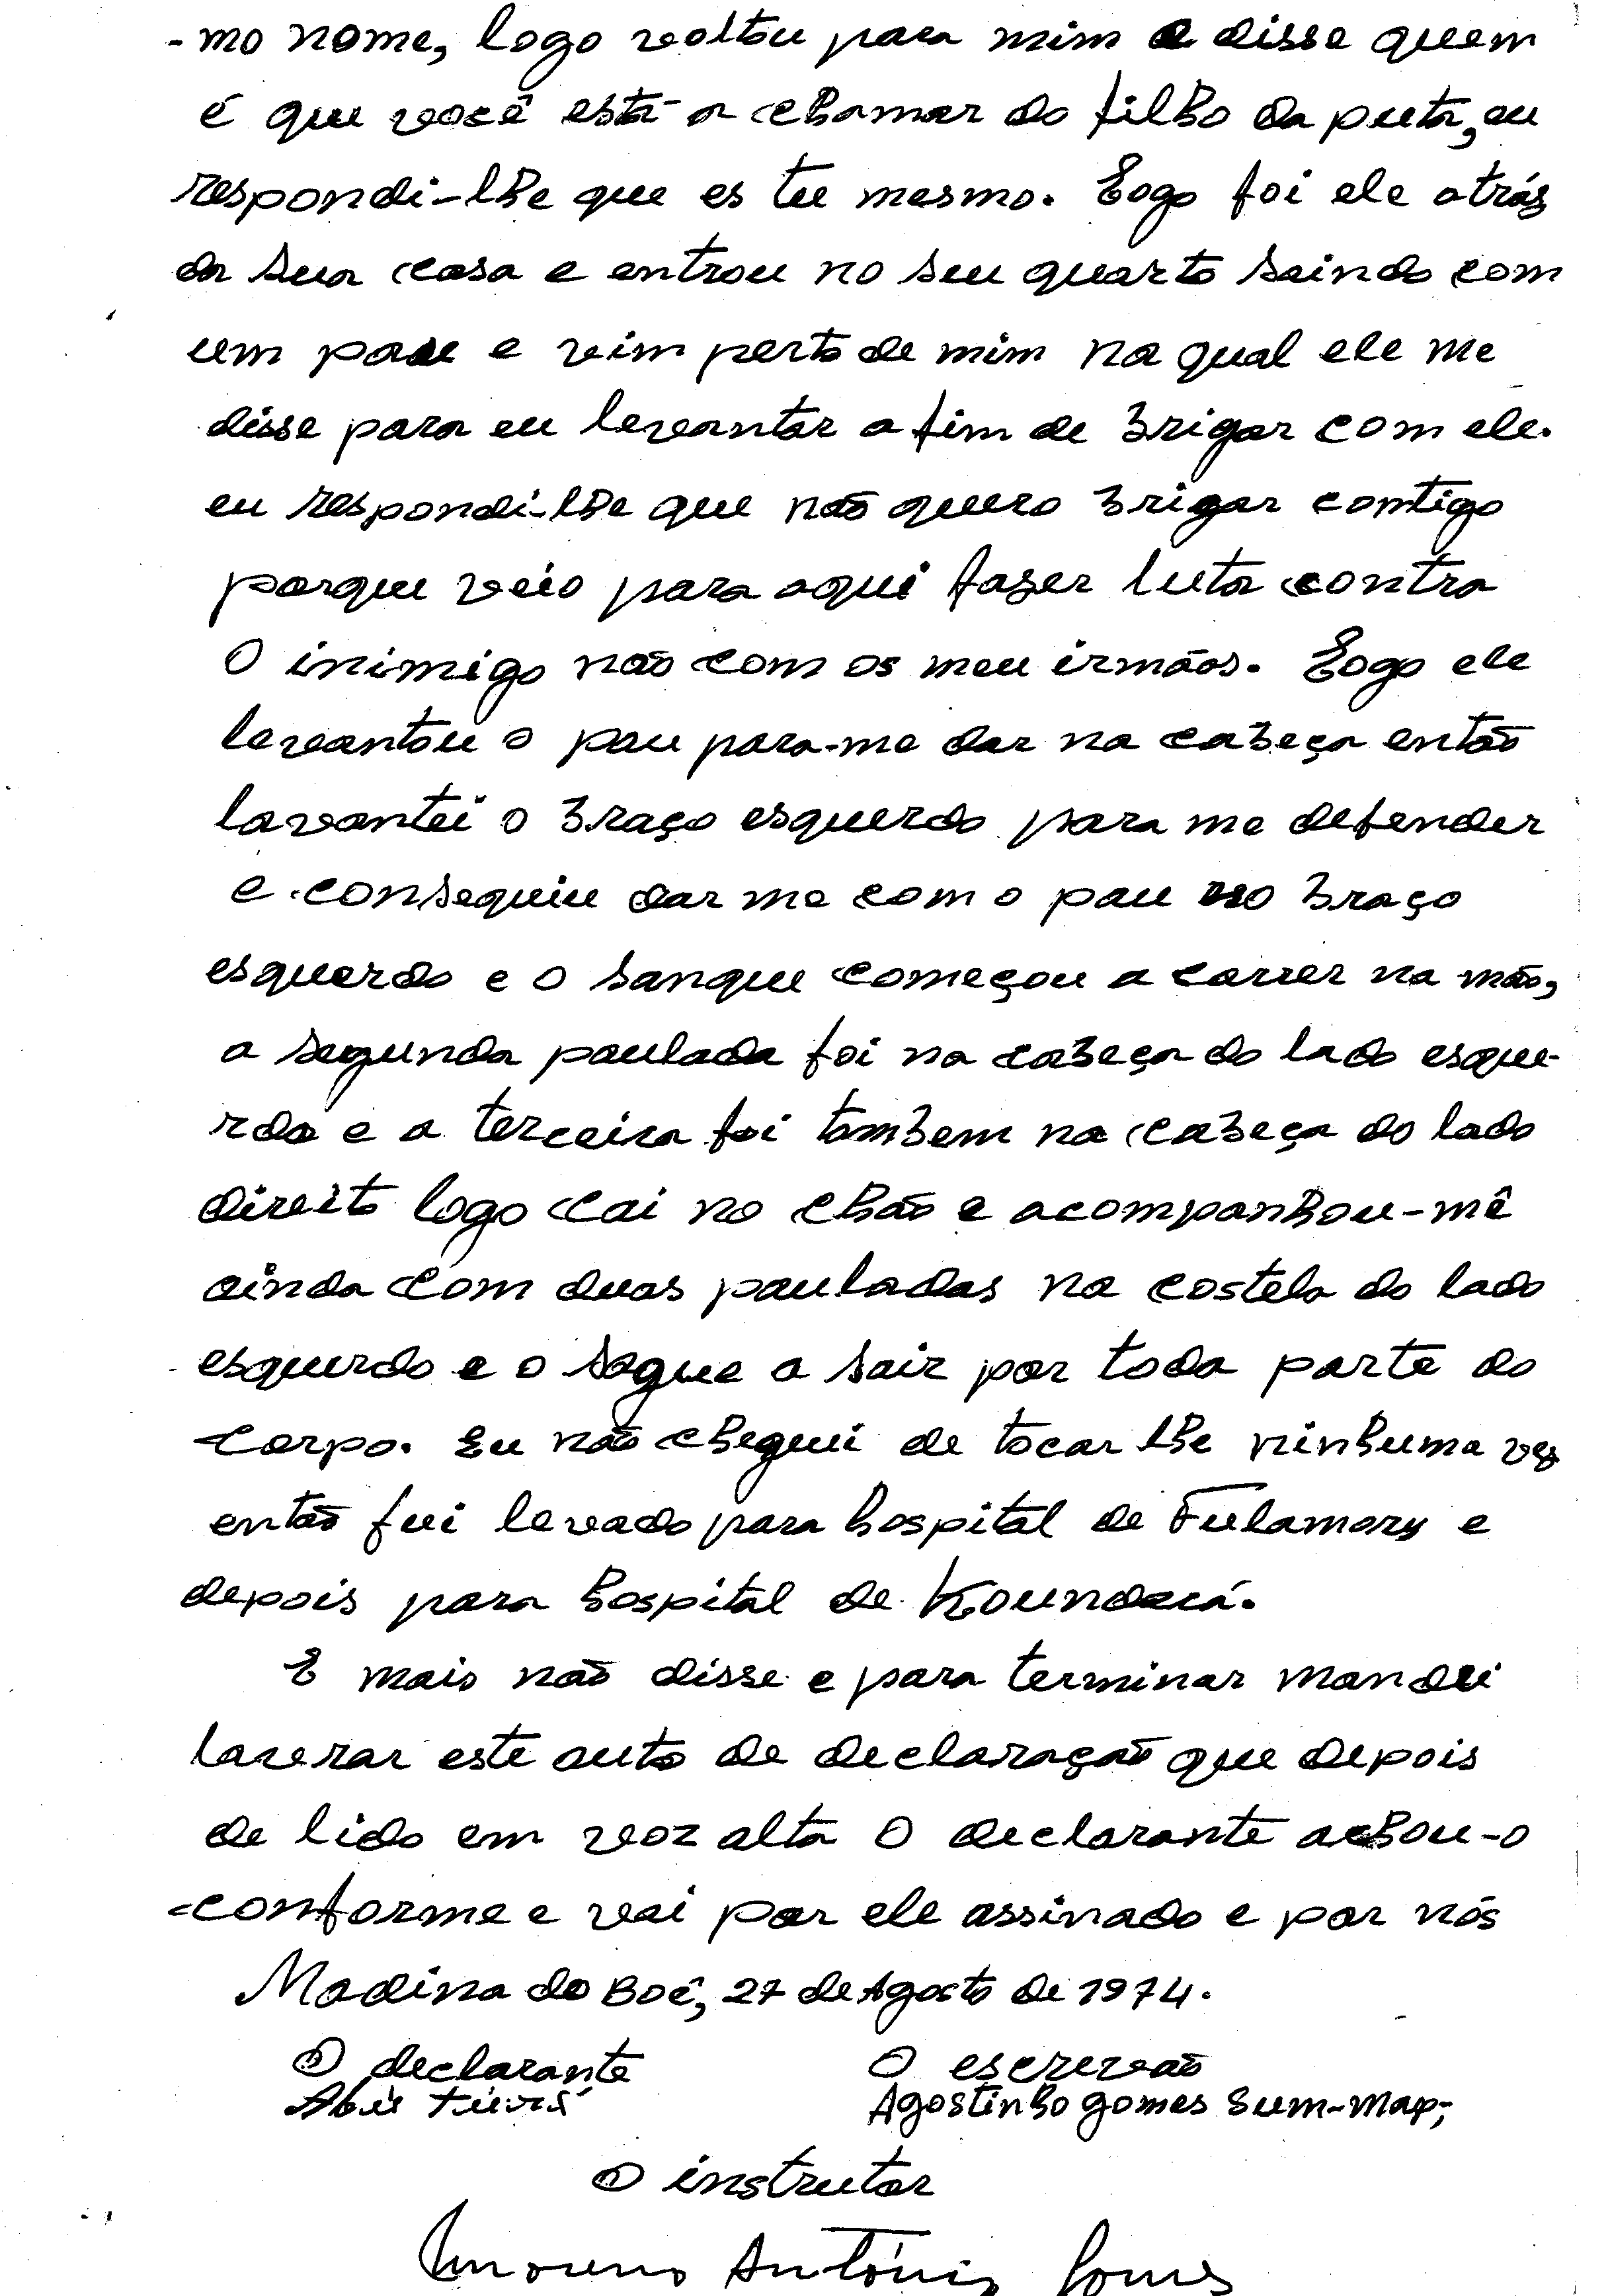 -mo nome, logo voltou para mim e disse quem
é que você está a chamar do filho da puta, eu
respondi-lhe que es tu mesmo. Logo foi ele atrás
da sua casa e entrou no seu quarto saindo com
um pau e vim perto de mim na qual ele me
disse para eu levantar a fim de brigar com ele.
eu respondi-lhe que não quero brigar contigo
porque veio para aqui faser luta contra
O inimigo não com os meu irmãos. Logo ele
levantou o pau para-me dar na cabeça então
lavantei o braço esquerdo para me defender
e conseguiu dar me com o pau no braço
esquerdo e o sangue começou a correr na mão,
a segunda paulada foi na cabeça do lado esque-
rdo e a terceira foi tambem na cabeça do lado
direito logo cai no chão e acompanhou-mê
ainda com duas pauladas na costela do lado
esquerdo e o sague a sair por toda parte do
corpo. Eu não chegui de tocar lhe ninhuma ves
então fui levado para hospital de Fulamory e
depois para hospital de Koundará.
E mais não disse e para terminar mandei
lavrar este auto de declaração que depois
de lido em voz alta O declarante achou-o
conforme e vai por ele assinado e por nós
Madina do Boé, 27 de Agosto de 1974.
O declarante O escrevão
Agostinho gomes Sum-map;
O instrutor
António Gomes